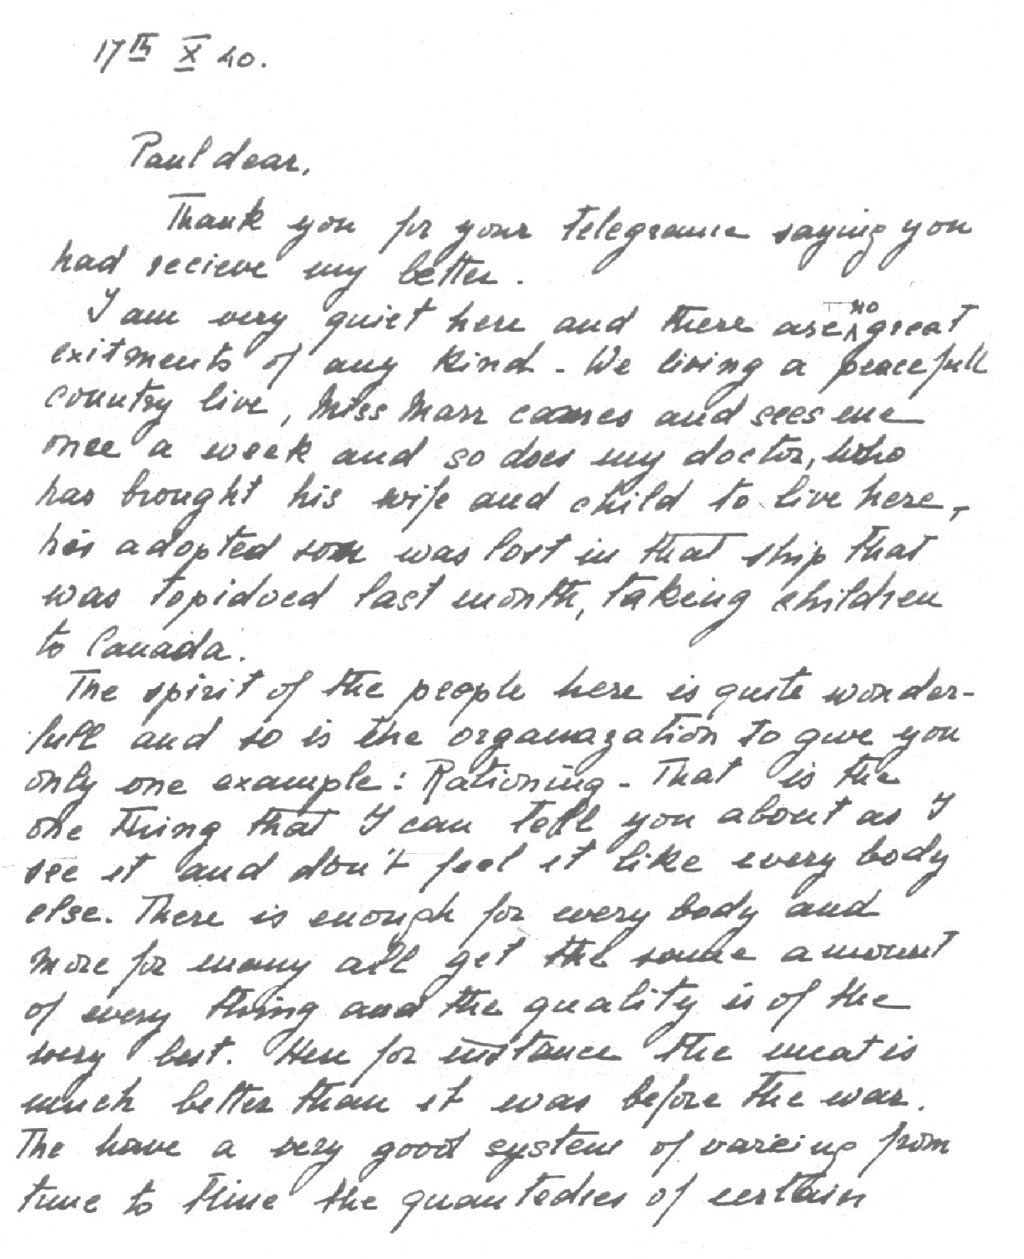 17th X 40.
Paul dear,
Thank you for your telegrame saying you
had recieve my letter.
I am very quiet here and there are no great
exitments of any kind - We living a peacefull
country live, Miss Marr comes and sees me
once a week and so does my doctor, who
has brought his wife and child to live here,
his adopted son was lost in that ship that
was topidoed last month, taking children
to Canada.
The spirit of the people here is quite wonder-
full and so is the organazation to give you
only one example: Rationing - That is the
one thing that I can tell you about as I
see it and don't feel it like every body
else. There is enough for every body and
more for many all get the same amount
of every thing and the quality is of the
very best. Here for instance the meat is
much better than it was before the war.
The have a very good system of varieing from
time to time the quantedies of certain